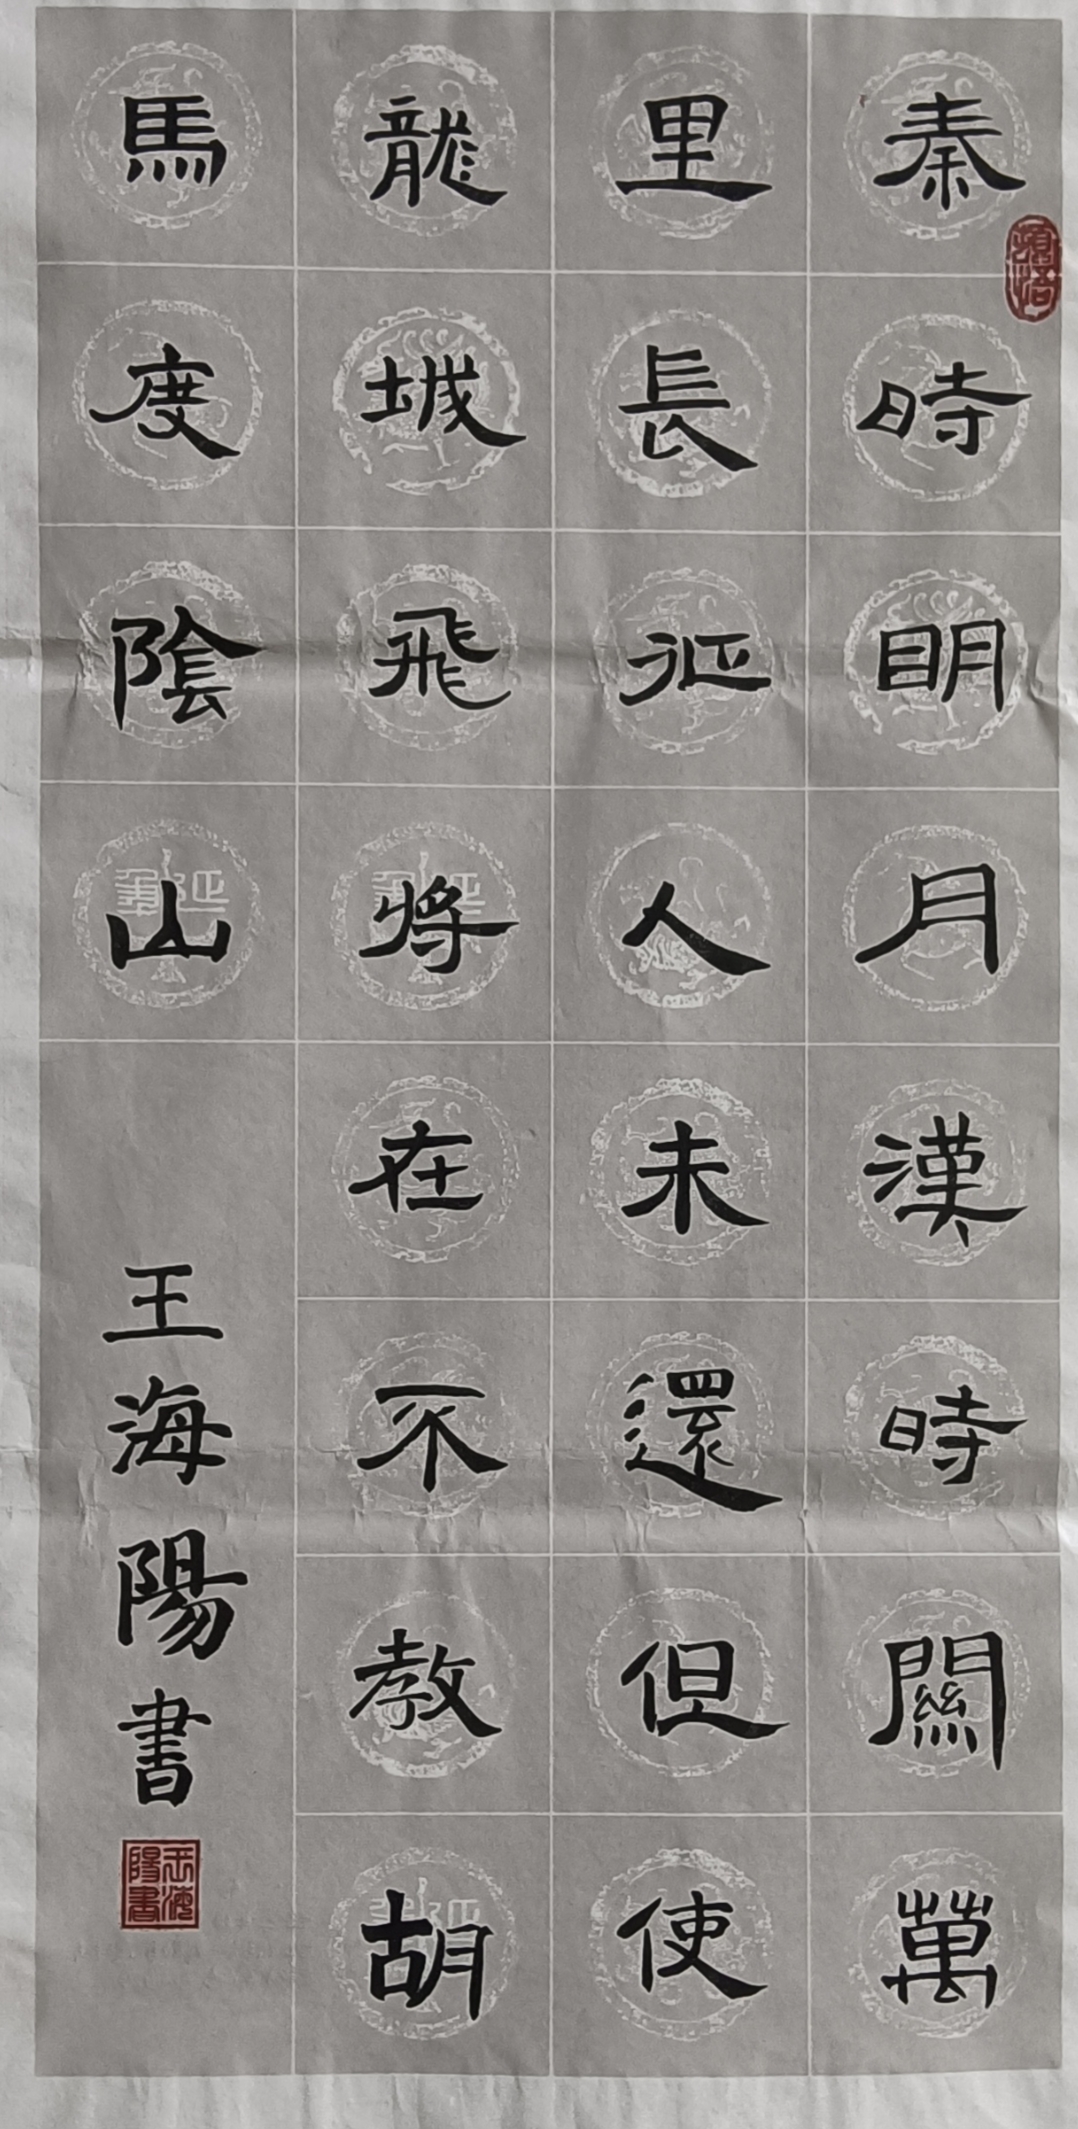 秦時明月漢時關萬
里長征人未還但使
龍城飛將在不教胡
馬度陰山
王海陽書
王海陽書